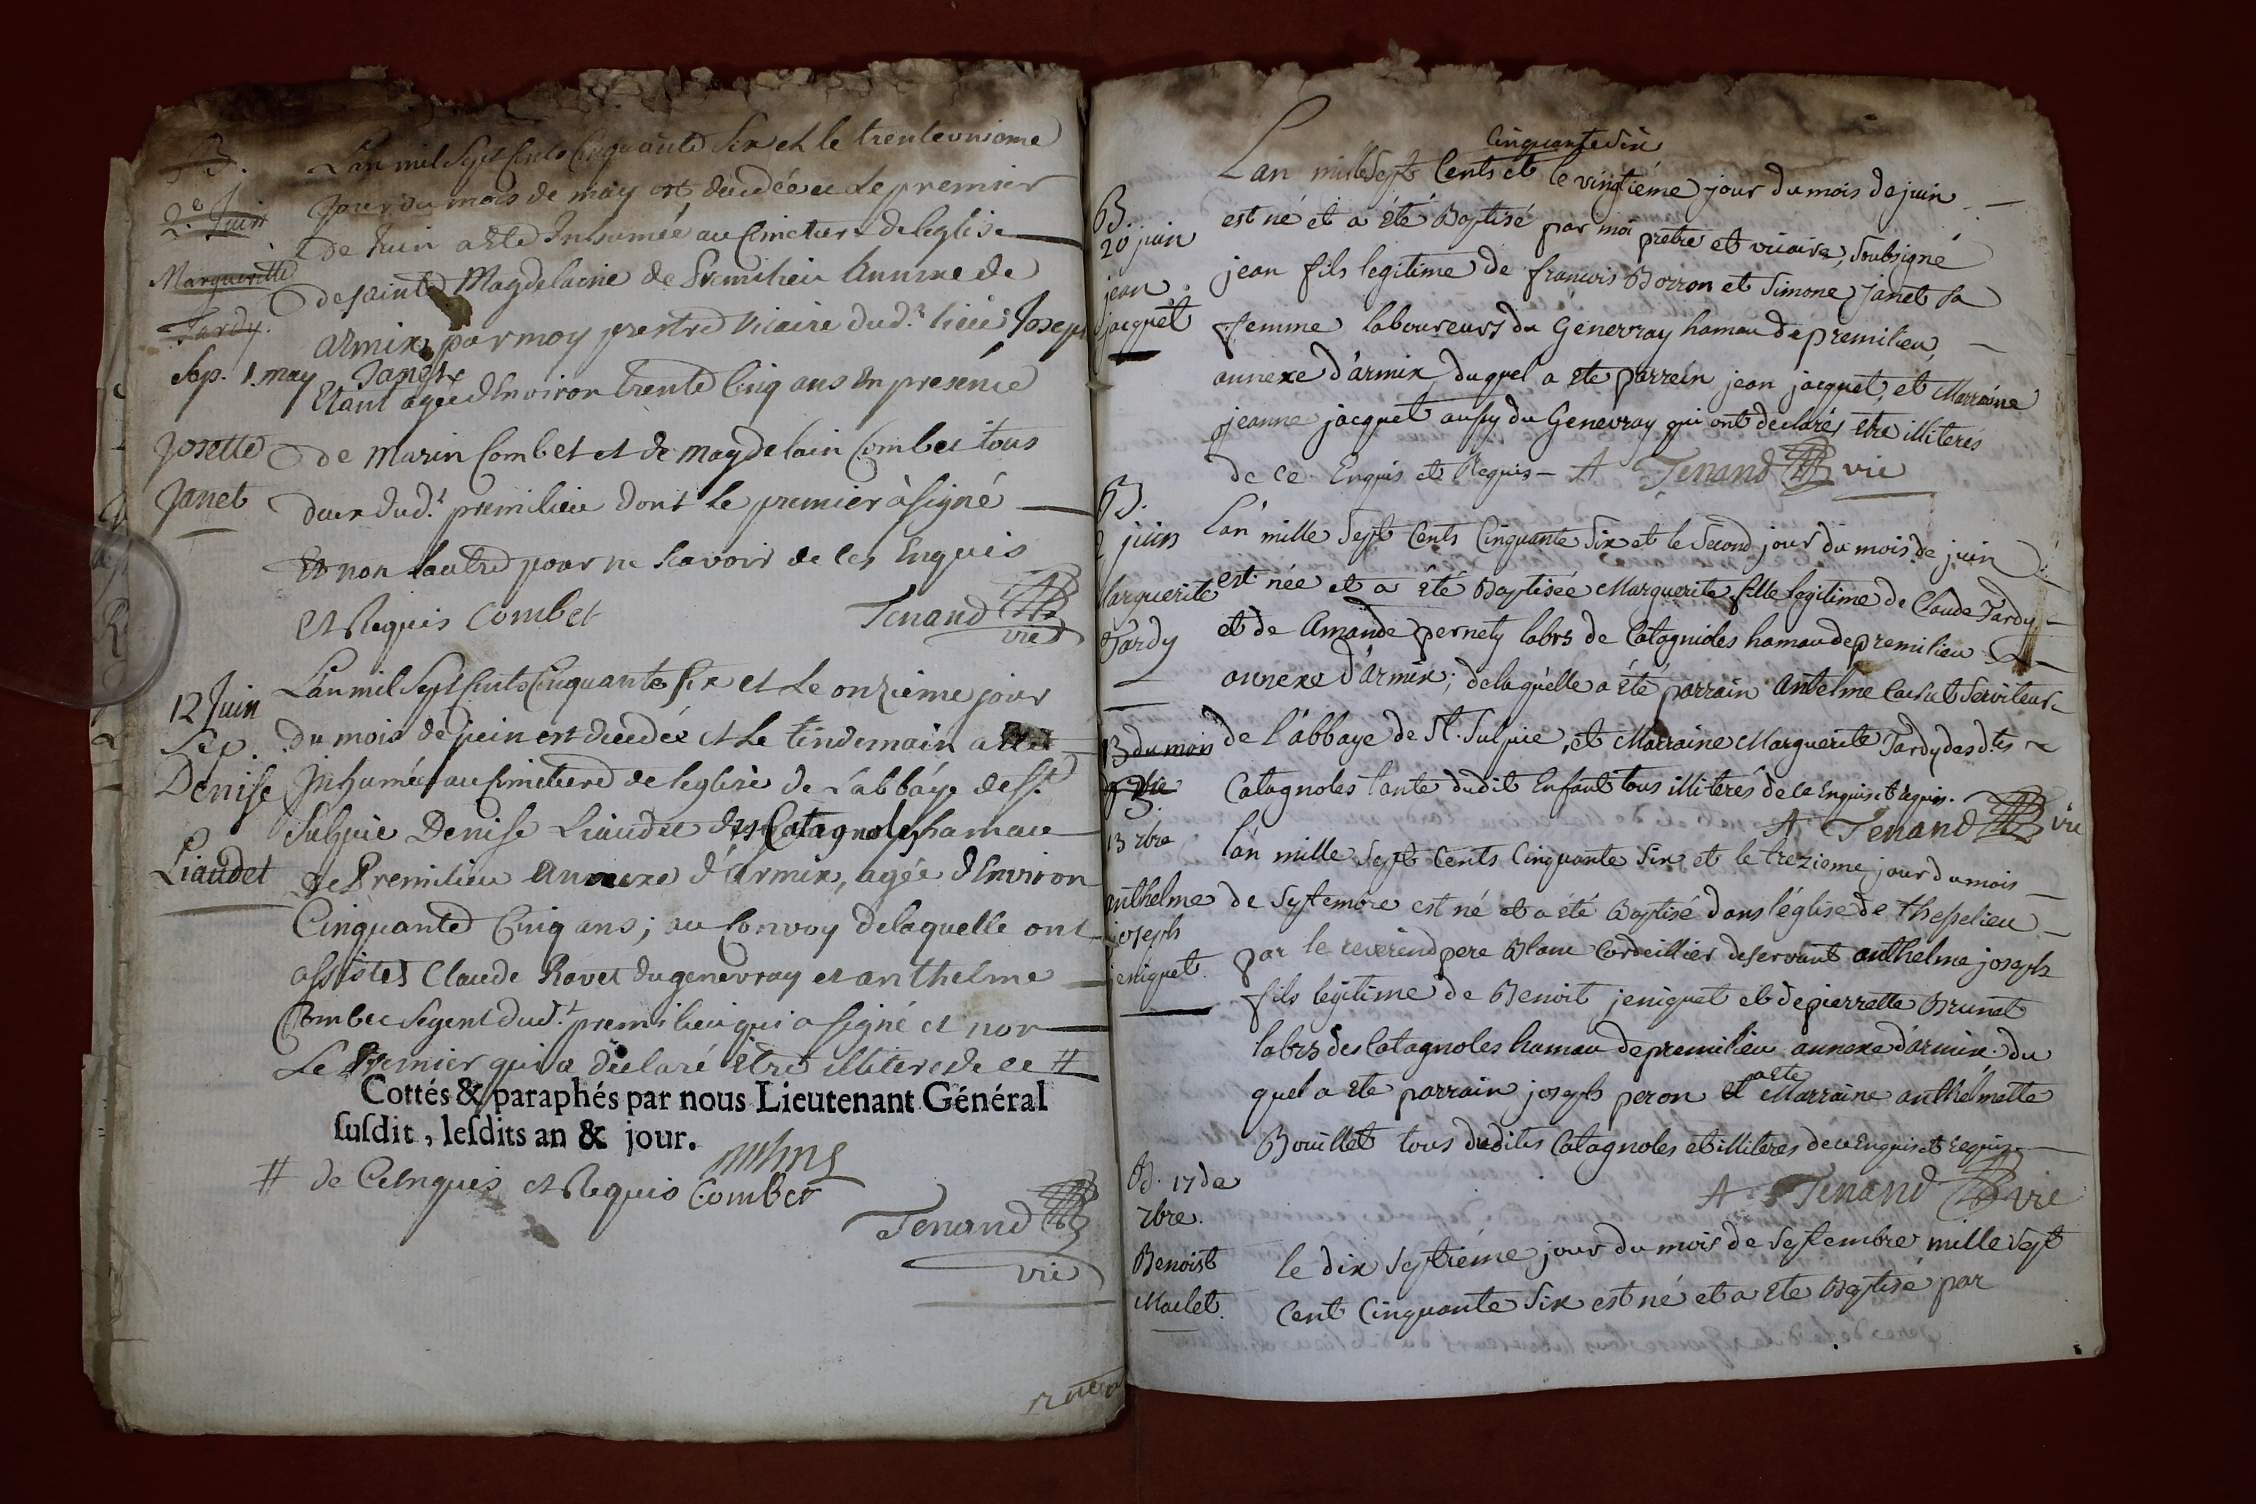 B.
2e Juin
Margueritte
Tardy.
Sep. 1. may
Josette
Janet
L'an mil sept cents cinquante six et le trente unieme
jour du mois de may est decedée et le premier
de Juin a ete Inhumée au cimetiere de leglise
de sainte Magdelaine de Premilieu Annexe de
Armix, par moy prestre vicaire dud.t lieu Joseph
Janet
Etant agée d'Environ trente Cinq ans En presence
de Marin Combet et de Magdelain Combet tous
deux dud.t premilieu dont le premier à signé
Et non lautre pour ne scavoir de ces Enquis
Et Requis Combet Tenand
vic
12 Juin
Sep.
Denise
Liaudet
L'an mil sept cents cinquante six et le onzième jour
du mois de juin est decedée et le lendemain a eté
Inhumée au cimetiere de leglise de L'abbáye de St
Sulpie Denise Liaudet des Catagnoles hamau
de Premilieu Annexe d'armix, agée d'Environ
Cinquante Cinq ans; au Convoy delaquelle ont
assistes Claude Ravet du genevray et anthelme
Combet segent dud.t premilieu qui a signé et non
Le Premier qui a déclaré être illitere de ce #
Cottés & paraphés par nous Lieutenant Général
susdit, lesdits an & jour.
# de Ce Enquis et Requis Combet
Tenand
vic
Cinquante Six
B.
20 juin
jean
jacquet
L'an mille Sept Cents et le vingtiéme jour du mois de juin
est né et a été Baptisé par moi pretre et vicaire, Soubsigné
jean fils legitime de francois Borron et Simone Janet sa
femme laboureurs du Genevray hamau de premilieu,
annexe d'armix, duquel a ete parrein jean jacquet, et Marraine
jeanne jacquet aussy du Genevray qui ont declarés etre illiterés
de ce Enquis et Requis - A Tenand vic
B.
2 juin
Marguerite
Tardy
L'an mille Sept Cents Cinquante Six et le Second jour du mois de juin
est née et a été Baptisée Marguerite fille legitime de Claude Tardy
et de Amande pernety labrs de Catagnioles hamau de premilieu
annexe d'armix; delaquelle a été parrain Antelme Serviteur
de l'abbaye de St. Sulpie, et Marraine Marguerite Tardy desd.tes
Catagnoles tante dudit Enfant tous illiterés de ce Enquis et Requis.
A Tenand vic
13 du mois
13 7bre
anthelme
joseph
jeniquet.
l'an mille Sept Cents Cinquante Six et le trezieme jour du mois
de Septembre est né et a été Baptisé dans l'église de thesselieu
par le reverend pere Blanc Cordeillier deservant anthelme joseph
fils legitime de Benoit jeniquet et de pierrette Brunet
labrs des Catagnoles hamau de premilieu annexe d'armix. du
quel a ete parrain joseph peron et a ete Marraine anthelmette
Bouillet tous dedites Catagnoles et illiteres de ce Enquis et Requis
A Tenand vic
B. 17 de
7bre.
Benoist
Maclet.
le dix septiéme jour du mois de Septembre mille Sept
Cent Cinquante Six est né et a ete Baptisé par